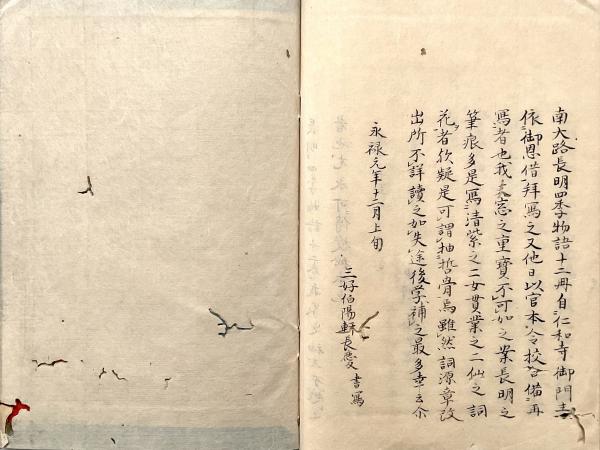 南大路長明四季物語十二冊自仁和寺御門主
依御恩借拝写之又他日以官本令校合備再
写者也我家忘之重宝不可如之案長明之
筆痕多是写清紫之二女貫業之二仙之詞
花者欤疑是可謂抽哲骨焉雖然詞源章段
出所不詳読之如失途後学補之最多幸云尓
永禄元年十二月上旬
三好伯陽軒長慶書写